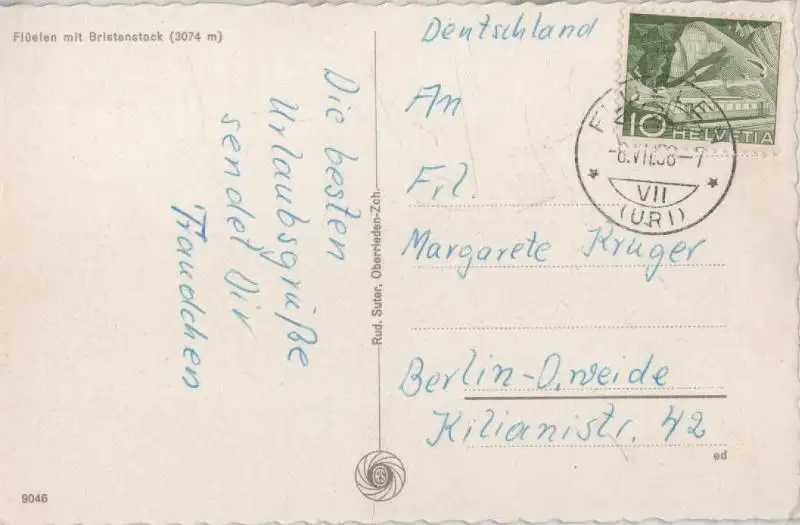 Flüelen mit Bristenstock (3074 m)
Die besten
Urlaubsgrüße
sendet Dir
Traudchen
Rud. Suter, Oberrieden-Zch.
9046
Deutschland
An
Frl.
Margarete Krüger
Berlin-O,weide
Kilianistr. 42
ed
10 HELVETIA
-8.VII.58-7
VII
(URI)